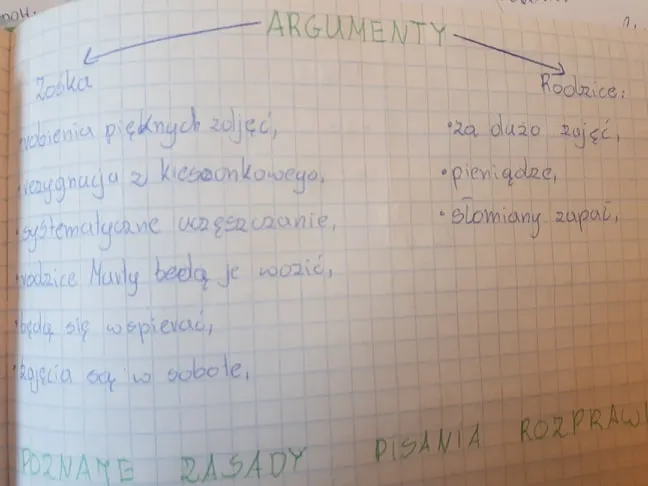 ARGUMENTY
Zośka
Rodzice:
robienia pięknych zdjęć,
•za dużo zajęć,
•rezygnacja z kieszonkowego,
•pieniądze,
•systematyczne uczęszczanie,
•słomiany zapał,
•rodzice Marty będą je wozić,
•będą się wspierać,
•zajęcia są w sobotę,
POZNAJĘ ZASADY PISANIA ROZPRAWK